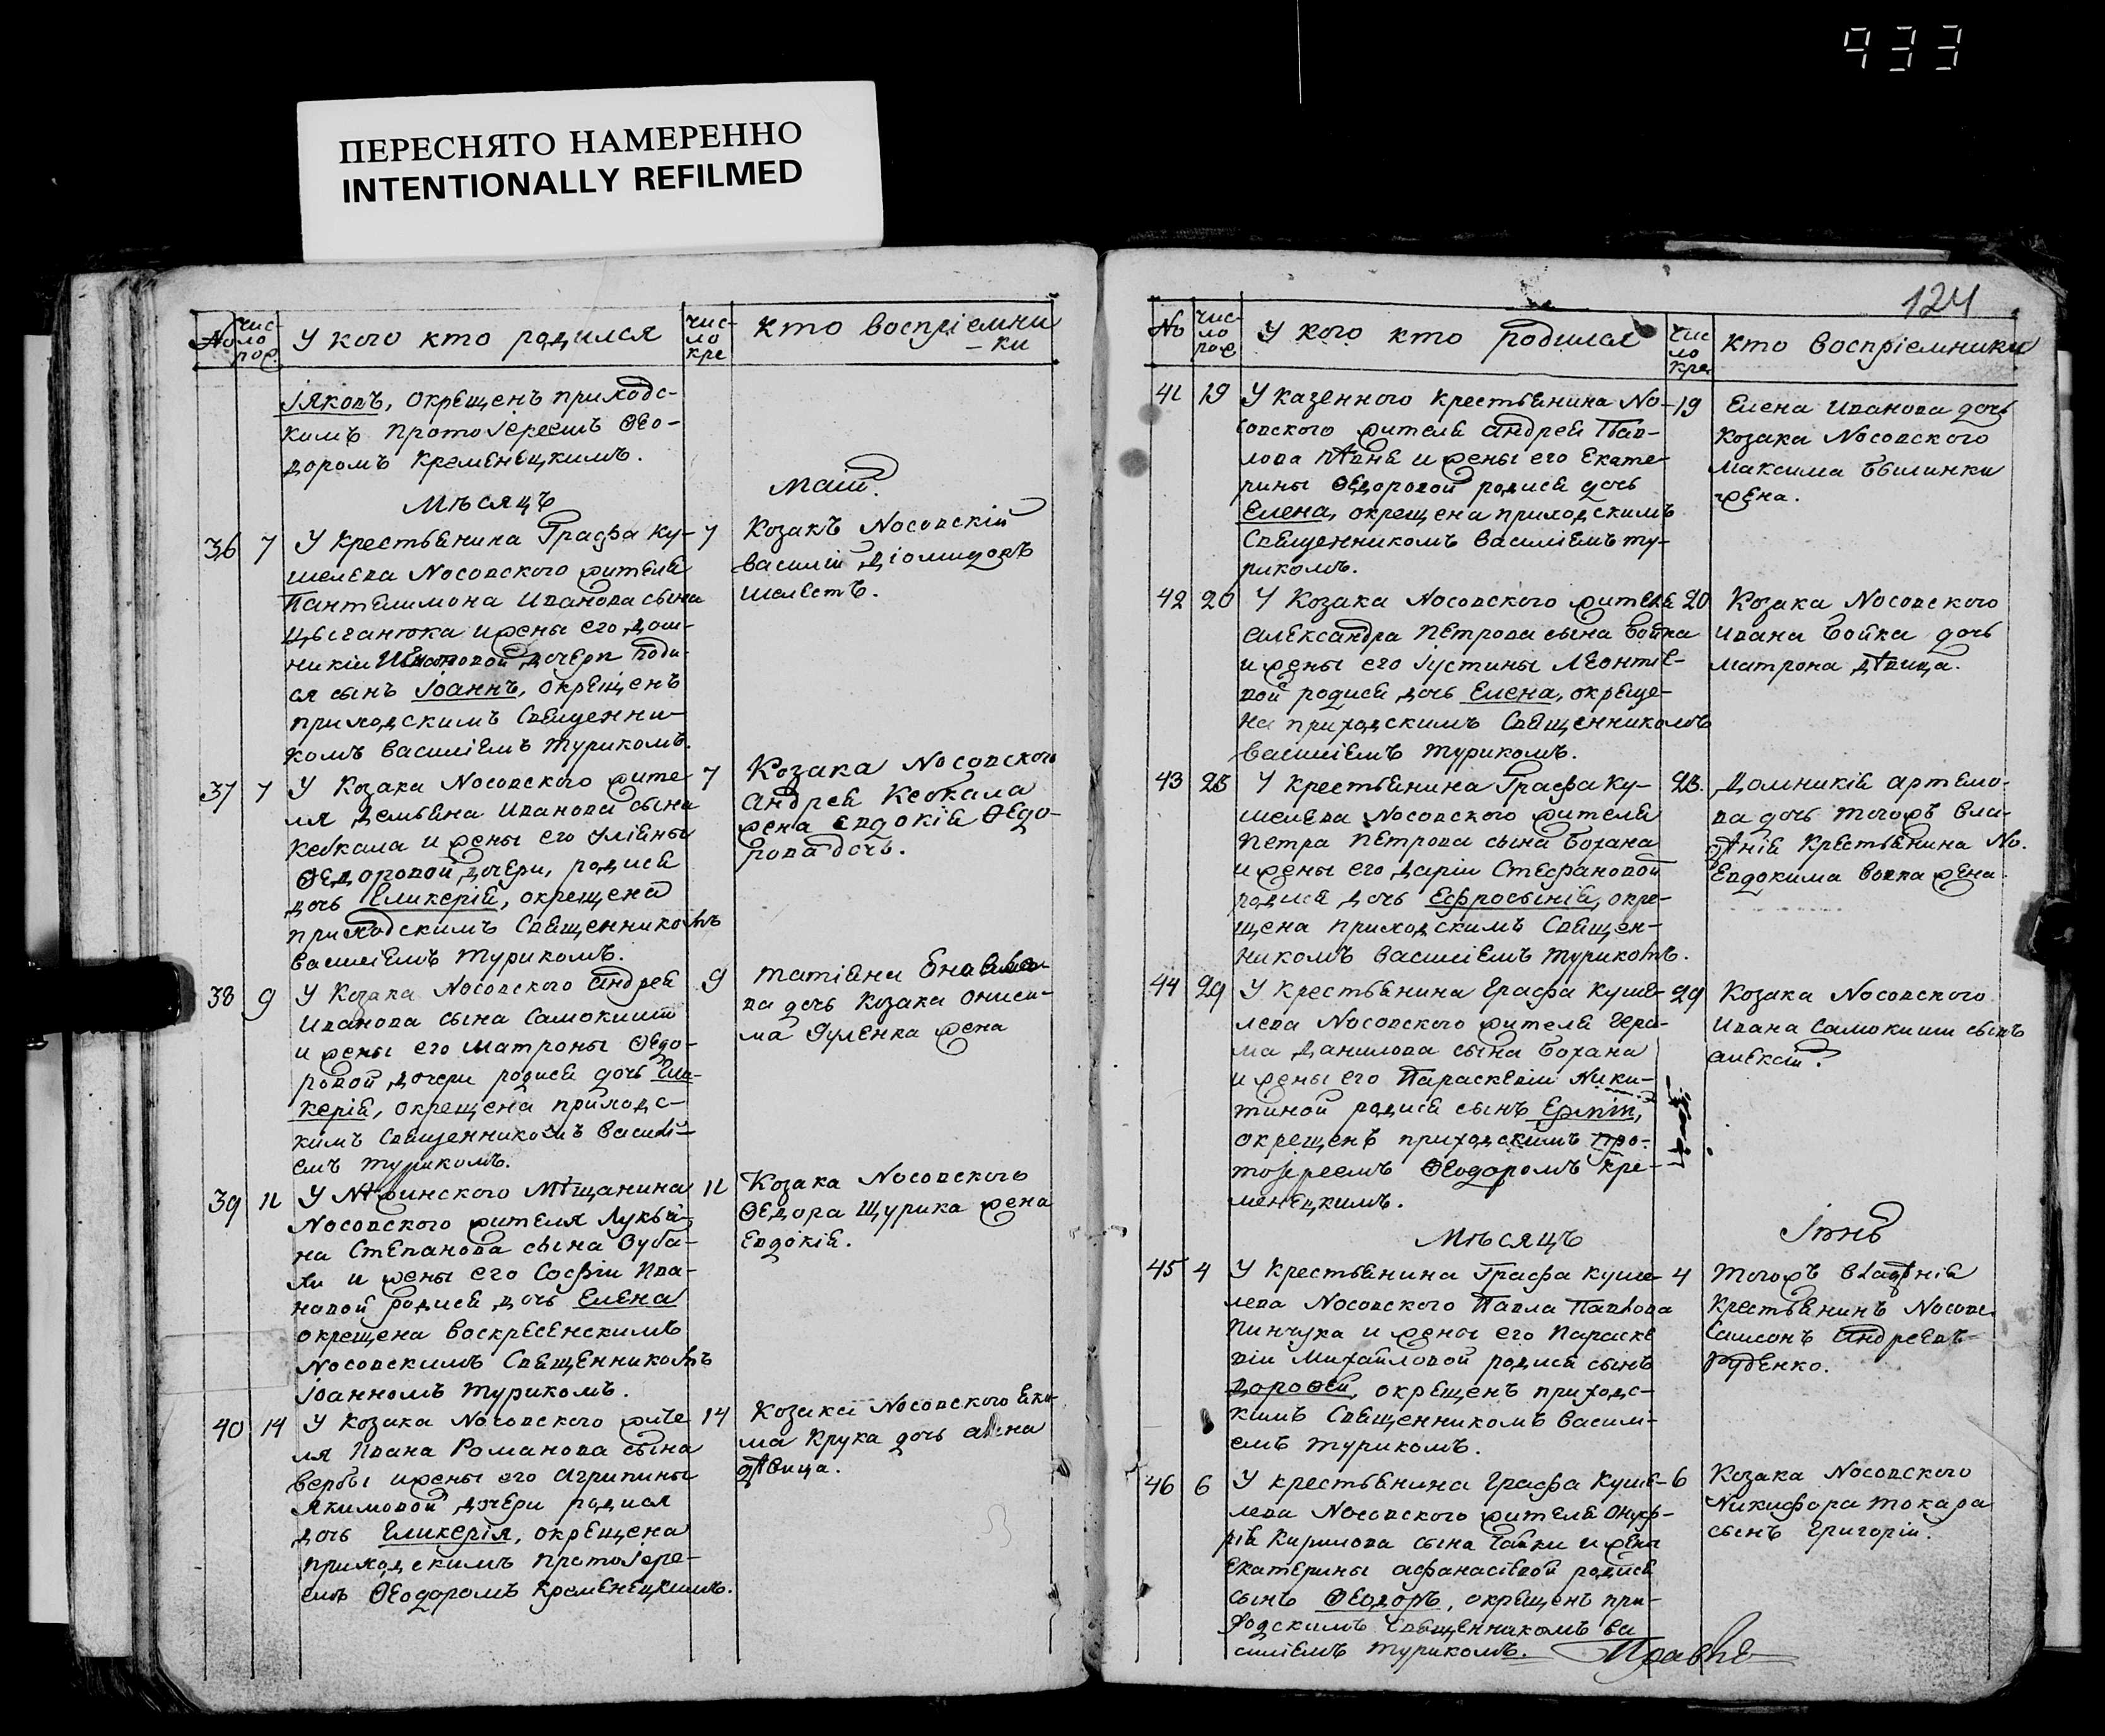 933
ПЕРЕСНЯТО НАМЕРЕННО
INTENTIONALLY REFILMED
124
№ чис-ло рож У кого кто родился чис-ло кре Кто воспріемни-ки
Іяковъ, окрещенъ приходс-
кимъ протоіереемъ Ѳео-
доромъ Кременецкимъ.
Мѣсяцъ Маій.
36 7 У крестьянина Графа Ку-
шелева Носовского жителя
Пантелимона Иванова сына
Цыганюка и жены его Дом-
никіи дочери роди-
ся сынъ Іоаннъ, окрещенъ
приходскимъ Священни-
комъ Василіемъ Турикомъ.
7 Козакъ Носовскій
Василій Діомидовъ
Шелестъ.
37 7 У Козака Носовского жите
ля Демьяна Иванова сына
Кевкала и жены его Уліяны
Ѳедоровой дочери, родися
дочь Гликерія, окрещена
приходскимъ Священникомъ
Василіемъ Турикомъ.
7 Козака Носовского
Андрея Кевкала
жена Евдокія Ѳедо-
рова дочь.
38 9 У Козака Носовского Андрея
Иванова сына Самокиши
и жены его Матроны Ѳедо-
ровой дочери родися дочь Гли-
керія, окрещена приходс-
кимъ Священникомъ Василі-
емъ Турикомъ.
9 Татіяна
ва дочь Козака Ониси-
ма Гуленка жена
39 12 У Нѣжинского Мѣщанина
Носовского жителя Лукья-
на Степанова сына Зуба-
хи и жены его Софіи Ива-
новой родися дочь Елена
окрещена Воскресенскимъ
Носовскимъ Священникомъ
Іоанномъ Турикомъ.
12 Козака Носовского
Ѳедора Щурика жена
Евдокія.
40 14 У Козака Носовского жите
ля Ивана Романова сына
Вербы и жены его Агрипины
Якимовой дочери родися
дочь Гликерія, окрещена
приходскимъ протоіере-
емъ Ѳеодоромъ Кременецкимъ.
14 Козака Носовского Еки-
ма Крука дочь Анна
дѣвица.
№ чис-ло рож У кого кто родился чис ло кре Кто воспріемники
41 19 У казенного крестьянина Но-
совского жителя Андрея Пав-
лова и жены его Екате-
рины Ѳедоровой родися дочь
Елена, окрещена приходскимъ
Священникомъ Василіемъ Ту-
рикомъ.
19 Елена Иванова дочь
Козака Носовского
Максима Былинки
жена.
42 20 У Козака Носовского жителя
Александра Петрова сына Бойка
и жены его Іустины Леонтіе-
вой родися дочь Елена, окреще-
на приходскимъ Священникомъ
Василіемъ Турикомъ.
20 Козака Носовского
Ивана Бойка дочь
Матрона дѣвица.
43 23 У крестьянина Графа Ку-
шелева Носовского жителя
Петра Петрова сына Бохана
и жены его Даріи Стефановой
родися дочь Ефросынія, окре-
щена приходскимъ Священ-
никомъ Василіемъ Турикомъ.
23. Домникія Артемо-
ва дочь тогожъ вла-
дѣнія крестьянина Но.
Евдокима Вовка жена
44 29 У крестьянина Графа Куше-
лева Носовского жителя Гера-
ма Данилова сына Бохана
и жены его Параскевіи Ники-
тиной родися сынъ Ермій,
окрещенъ приходскимъ про-
тоіереемъ Ѳеодоромъ Кре-
менецкимъ.
29 Козака Носовского
Ивана Самокиши сынъ
Алексій.
Мѣсяцъ Іюнь
45 4 У крестьянина Графа Куше-
лева Носовского Павла Павлова
Пинчука и жены его Параске
віи Михайловой родися сынъ
Дороѳей, окрещенъ приходс-
кимъ Священникомъ Василі-
емъ Турикомъ.
4 Тогожъ владѣнія
крестьянинъ Носовс.
Самсонъ Андреевъ
Руденко.
46 6 У крестьянина Графа Куше-
лева Носовского жителя Онуф-
рія Кирилова сына Гайки и жены
Екатерины Афанасіевой родися
сынъ Ѳеодоръ, окрещенъ при-
ходскимъ Священникомъ Ва
силіемъ Турикомъ.
6 Козака Носовского
Никифора Токара
сынъ Григорій.